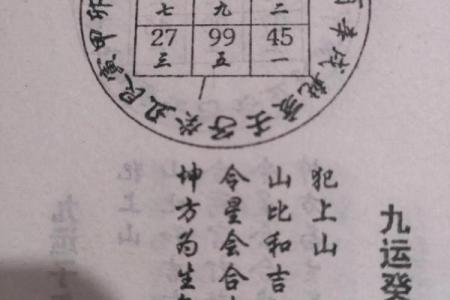 七 九 二
27 99 45
三 五 一
卯甲寅艮丑癸子壬亥乾戌辛酉
九运癸
犯上山
山比和吉
令星会合
坤方为生